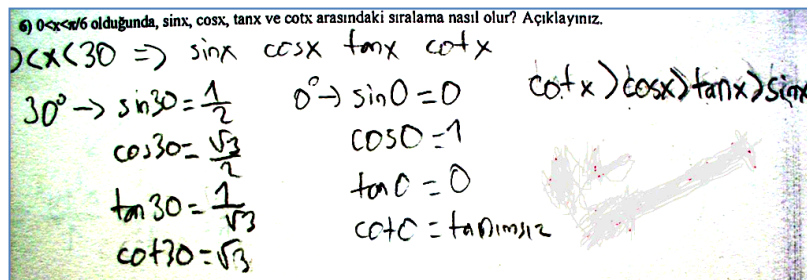 6) 0<x<π/6 olduğunda, sinx, cosx, tanx ve cotx arasındaki sıralama nasıl olur? Açıklayınız.
0<x<30 => sinx cosx tanx cotx
cotx>cosx>tanx>sinx
30° → sin30 = 1/2
cos30 = √3/2
tan30 = 1/√3
cot30 = √3
0° → sin0 = 0
cos0 = 1
tan0 = 0
cot0 = tanımsız